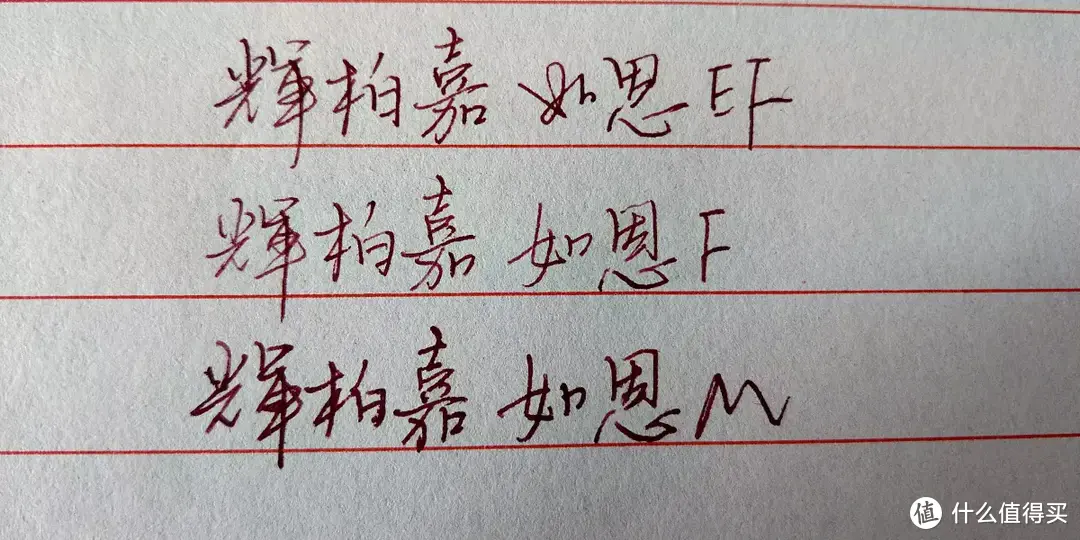 輝柏嘉 如恩 EF
輝柏嘉 如恩 F
輝柏嘉 如恩 M
值 什么值得买